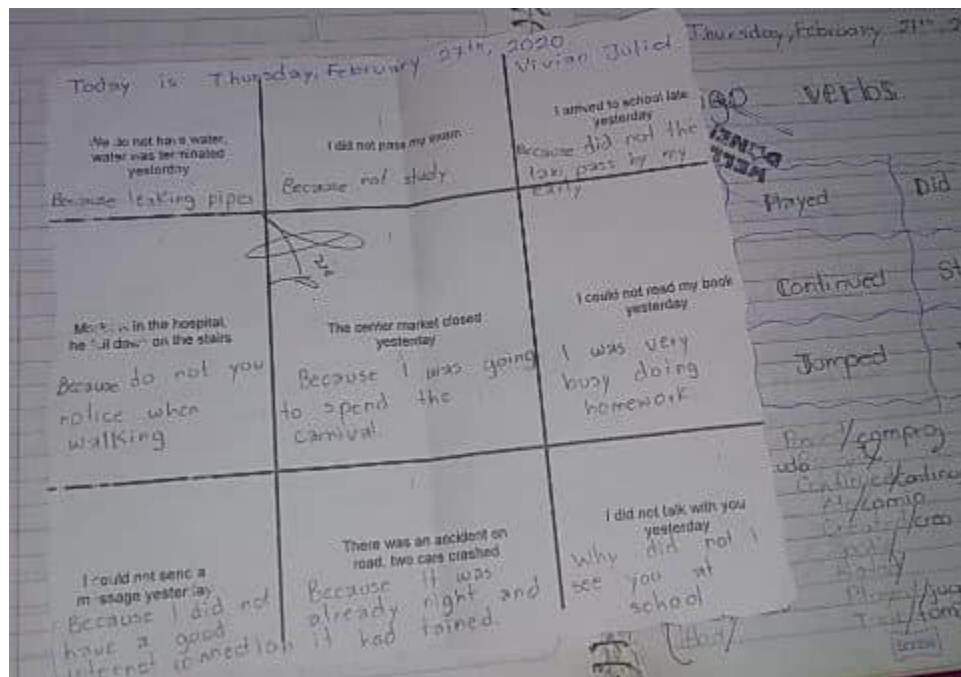 Today is Thursday, February 27th, 2020
Vivian Juliet
We do not have water,
water was terminated
yesterday
Because leaking pipes
I did not pass my exam
Because not study
I arrived to school late
yesterday
Because did not the
taxi pass by my
early
in the hospital,
he fell down on the stairs
Because do not you
notice when
walking
The center market closed
yesterday
Because I was going
to spend the
carnival.
I could not read my book
yesterday
I was very
busy doing
homework
I could not send a
message yesterday
Because I did not
have a good
internet connection
There was an accident on
road, two cars crashed
Because it was
already night and
it had rained.
I did not talk with you
yesterday
Why did not I
see you at
school
Thursday, February 21th, 2
verbs
WELL
DONE!
Played
Did
Continued
St
Jomped